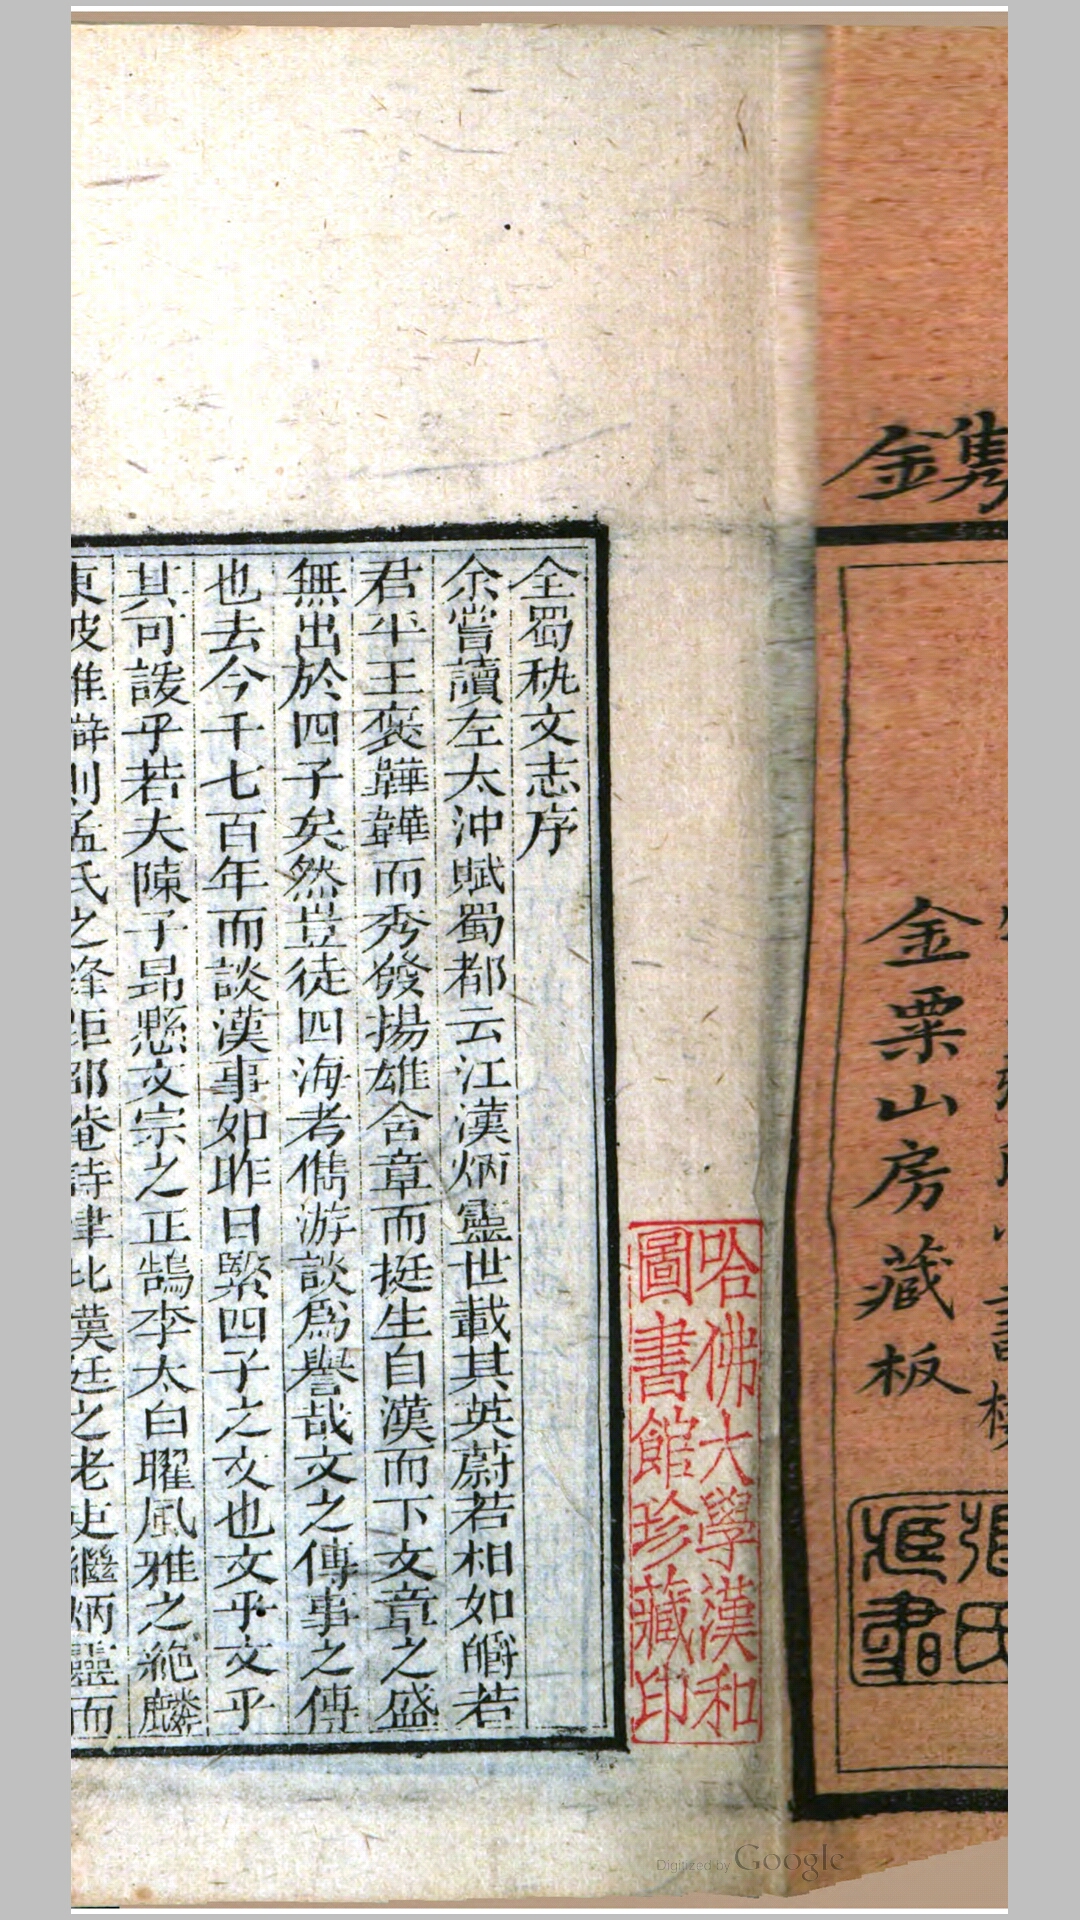 鐫
金
金粟山房藏板
全蜀秇文志序
余嘗讀左太沖賦蜀都云江漢炳靈世載其英蔚若相如皭若
君平王褒韡韡而秀發揚雄含章而挺生自漢而下文章之盛
無出於四子矣然豈徒四海考儁游談爲譽哉文之傳事之傳
也去今千七百年而談漢事如昨日繄四子之文也文乎文乎
其可諼乎若夫陳子昂懸文宗之正鵠李太白曜風雅之絶麟
東坡雄辯則孟氏之鋒距邵菴詩律比漢廷之老吏繼炳靈而
哈佛大學漢和
圖書館珍藏印
Digitized by Google